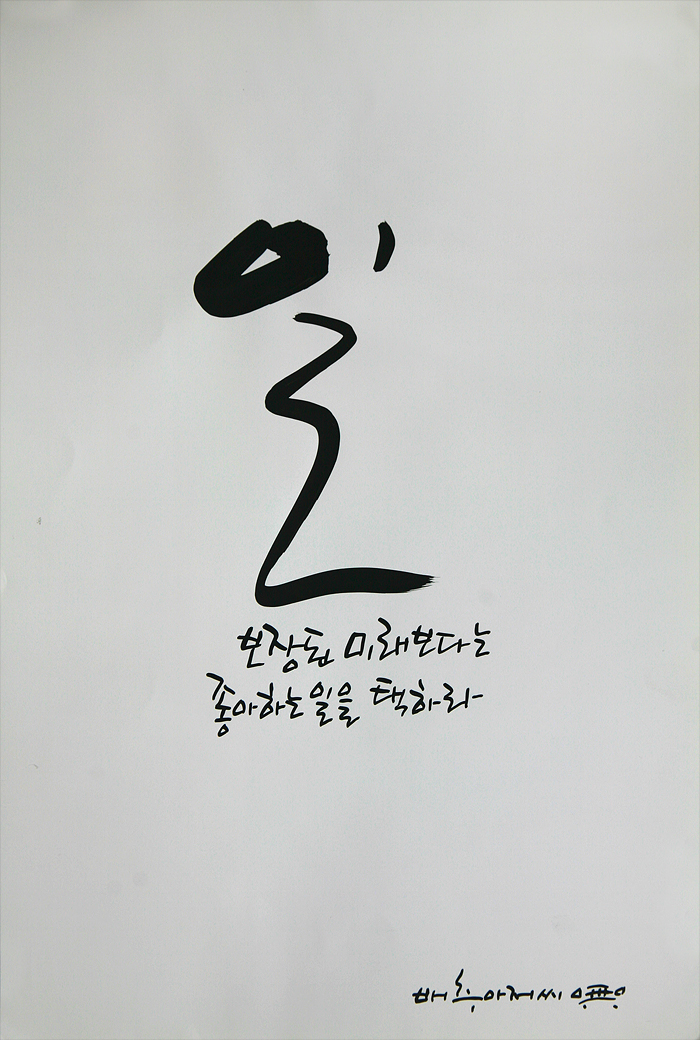 일
보장된 미래보다는
좋아하는 일을 택하라
배추아저씨